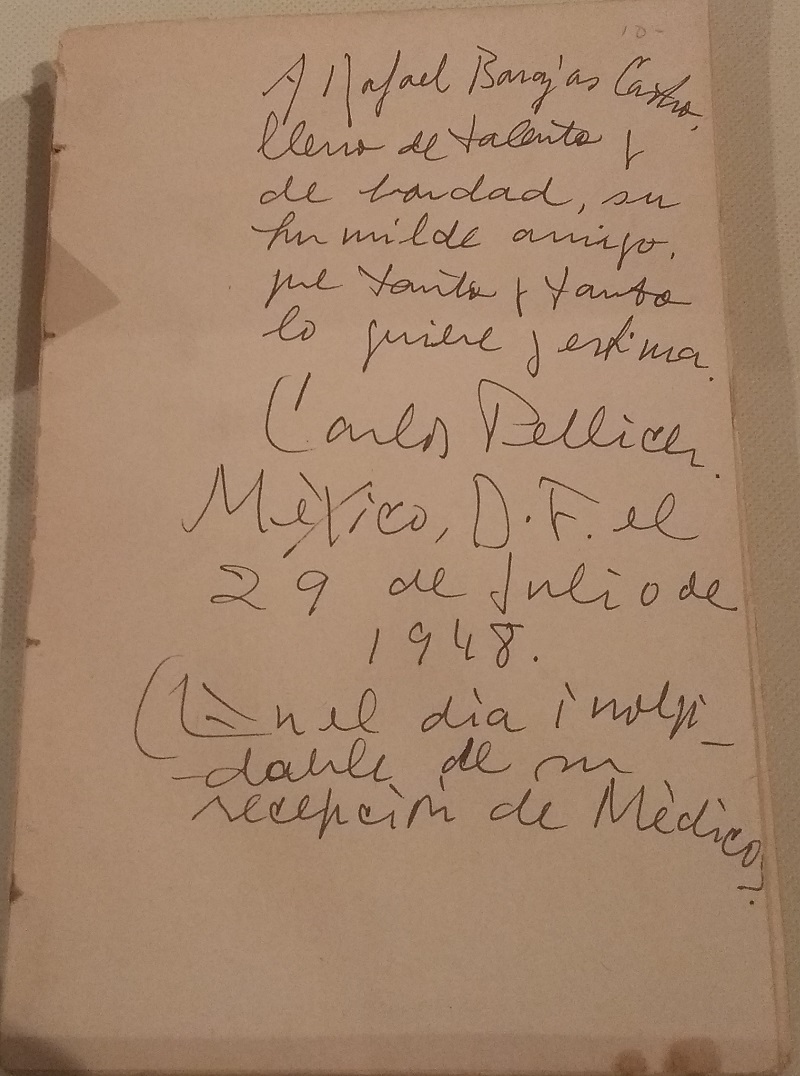 10-
A Rafael Barajas Castro,
lleno de talento y
de bondad, su
humilde amigo,
que tanto y tanto
lo quiere y estima.
Carlos Pellicer.
México, D.F. el
29 de Julio de
1948.
(En el día inolvi-
-dable de su
recepción de Médico).